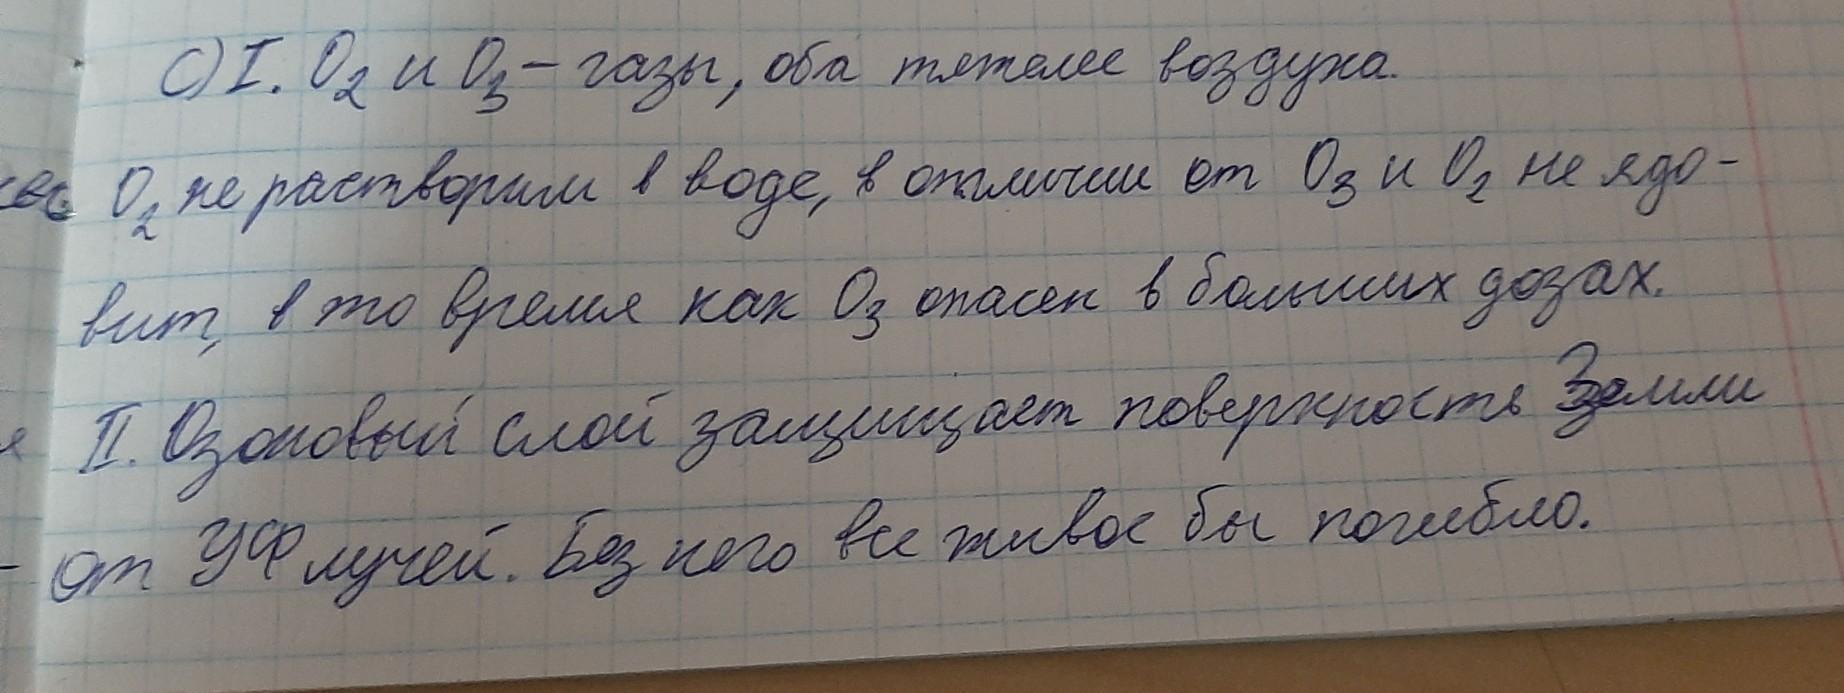 С) I. O₂ и O₃ – газы, оба тяжелее воздуха.
O₂ не растворим в воде, в отличии от O₃ и O₂ не ядо-
вит, в то время как O₃ опасен в больших дозах.
II. Озоновый слой защищает поверхность Земли
от УФ лучей. Без него все живое бы погибло.